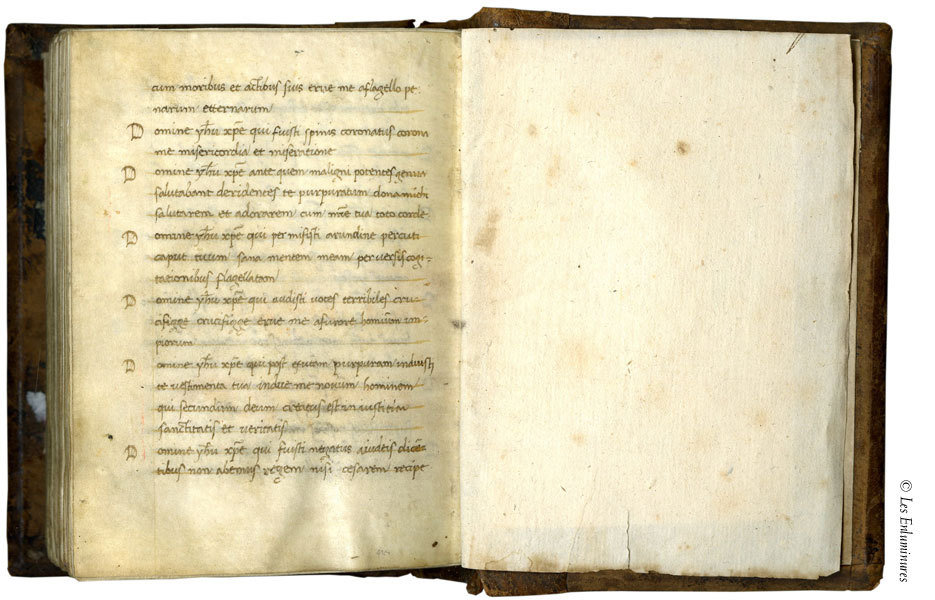 cum moribus et actibus suis erue me aflagello pe-
narum etternarum
Domine yhu xpe qui fuisti spinis coronatus corona
me misericordia et miseratione
Domine yhu xpe ante quem maligni potences genua
salutabant deridences te purpuratum dona michi
salutarem et adorarem cum mre tua toto corde
Domine yhu xpe qui permisisti arundine percuti
caput tuum sana mentem meam perversis cogi-
tacionibus flagellatam
Domine yhu xpe qui audisti voces terribiles cru-
cifigge crucifigge erue me afurore hominum im-
piorum
Domine yhu xpe qui post exutam purpuram induisti
te vestimenta tua indue me novum hominem
qui secundum deum creatus est in iustitia
sanctitatis et veritatis
Domine yhu xpe qui fuisti negatus aiudeis dicen-
tibus non abemus regem nisi cesarem recipe
© Les Enluminures